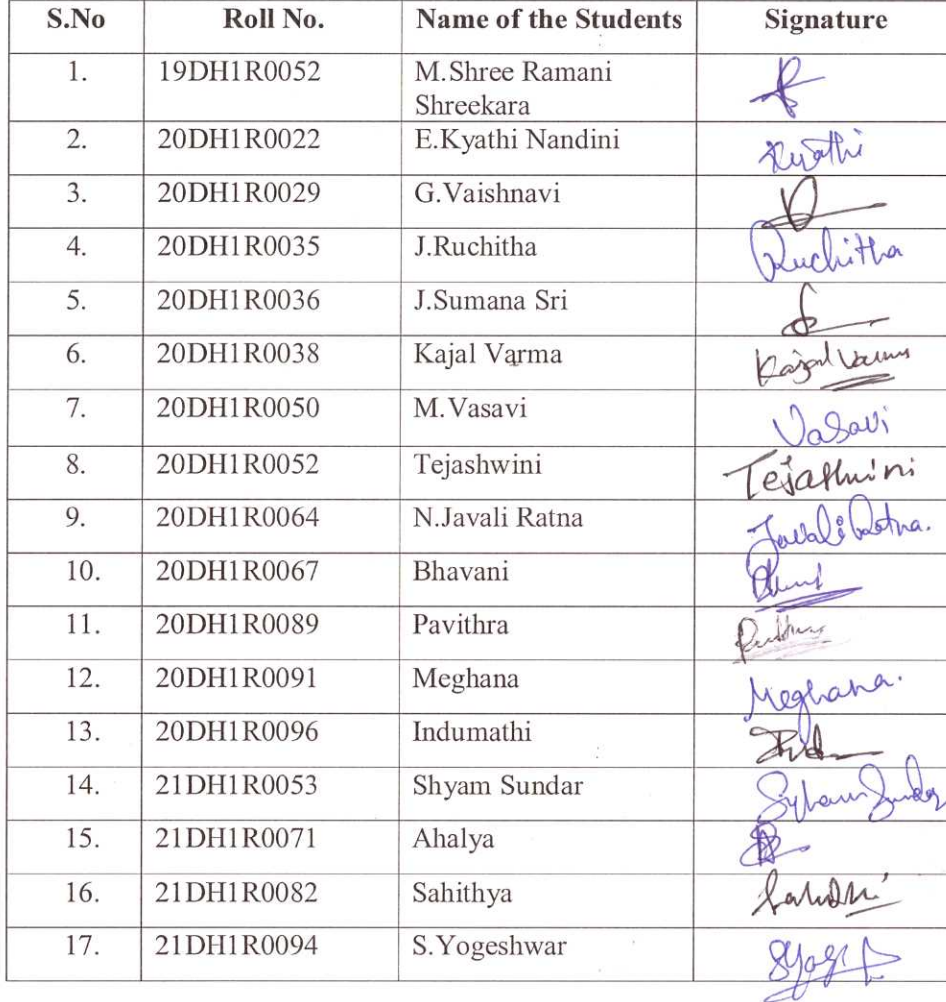 S.No Roll No. Name of the Students Signature
1. 19DH1R0052 M.Shree Ramani
Shreekara
2. 20DH1R0022 E.Kyathi Nandini Kyathi
3. 20DH1R0029 G.Vaishnavi
4. 20DH1R0035 J.Ruchitha Ruchitha
5. 20DH1R0036 J.Sumana Sri
6. 20DH1R0038 Kajal Varma Kajal Varma
7. 20DH1R0050 M.Vasavi Vasavi
8. 20DH1R0052 Tejashwini Tejashwini
9. 20DH1R0064 N.Javali Ratna Javali Ratna.
10. 20DH1R0067 Bhavani
11. 20DH1R0089 Pavithra
12. 20DH1R0091 Meghana Meghana.
13. 20DH1R0096 Indumathi
14. 21DH1R0053 Shyam Sundar
15. 21DH1R0071 Ahalya
16. 21DH1R0082 Sahithya
17. 21DH1R0094 S.Yogeshwar